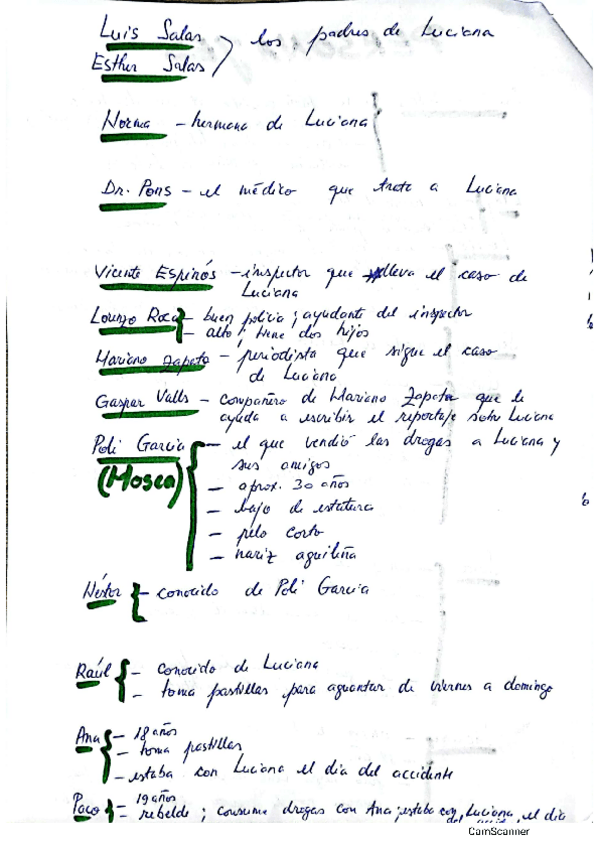 Luis Salas
Esther Salas } los padres de Luciana
Norma - hermana de Luciana
Dr. Pons - el médico que trata a Luciana
Vicente Espinós - inspector que lleva el caso de
Luciana
Lorenzo Roca - buen policía; ayudante del inspector
- alto; tiene dos hijos
Mariano Zapata - periodista que sigue el caso
de Luciana
Gaspar Valls - compañero de Mariano Zapata que le
ayuda a escribir el reportaje sobre Luciana
Poli García - el que vendió las drogas a Luciana y
(Mosca) sus amigos
- aprox. 30 años
- bajo de estatura
- pelo corto
- nariz aguileña
Néstor - conocido de Poli García
Raúl - conocido de Luciana
- toma pastillas para aguantar de viernes a domingo
Ana - 18 años
- toma pastillas
- estaba con Luciana el día del accidente
Paco - 19 años
- rebelde; consume drogas con Ana; estaba con Luciana el día
CamScanner